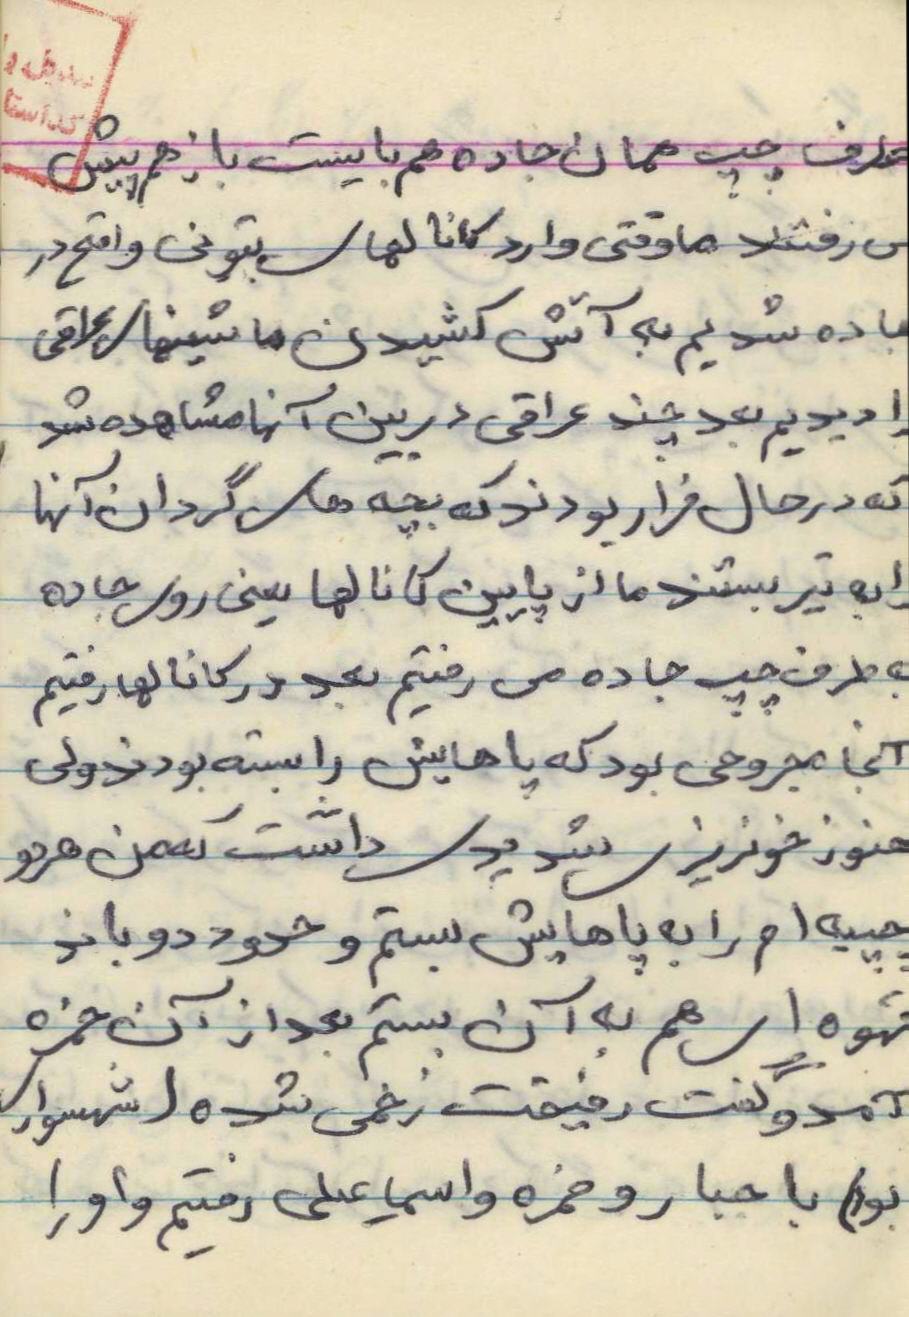 طرف چپ همان جاده هم بایست باز هم پیش
می رفتند ما وقتی وارد کانالهای بتونی واقع در
جاده شدیم به آتش کشیدن ماشینهای عراقی
را دیدیم بعد چند عراقی در بین آنها مشاهده شد
که در حال فرار بودند که بچه های گردان آنها
را به تیر بستند ما از پایین کانالها یعنی روی جاده
به طرف چپ جاده می رفتیم بعد در کانالها رفتیم
آنجا مجروحی بود که پاهایش را بسته بودند ولی
هنوز خونریزی شدیدی داشت که من هر دو
چپیه ام را به پاهایش بستم و حدود دو باند
قهوه ای هم به آن بستم بعد از آن حمزه
آمد و گفت رفیقت زخمی شده (شهسواری
بود) با جبار و حمزه و اسماعیلی رفتیم و او را